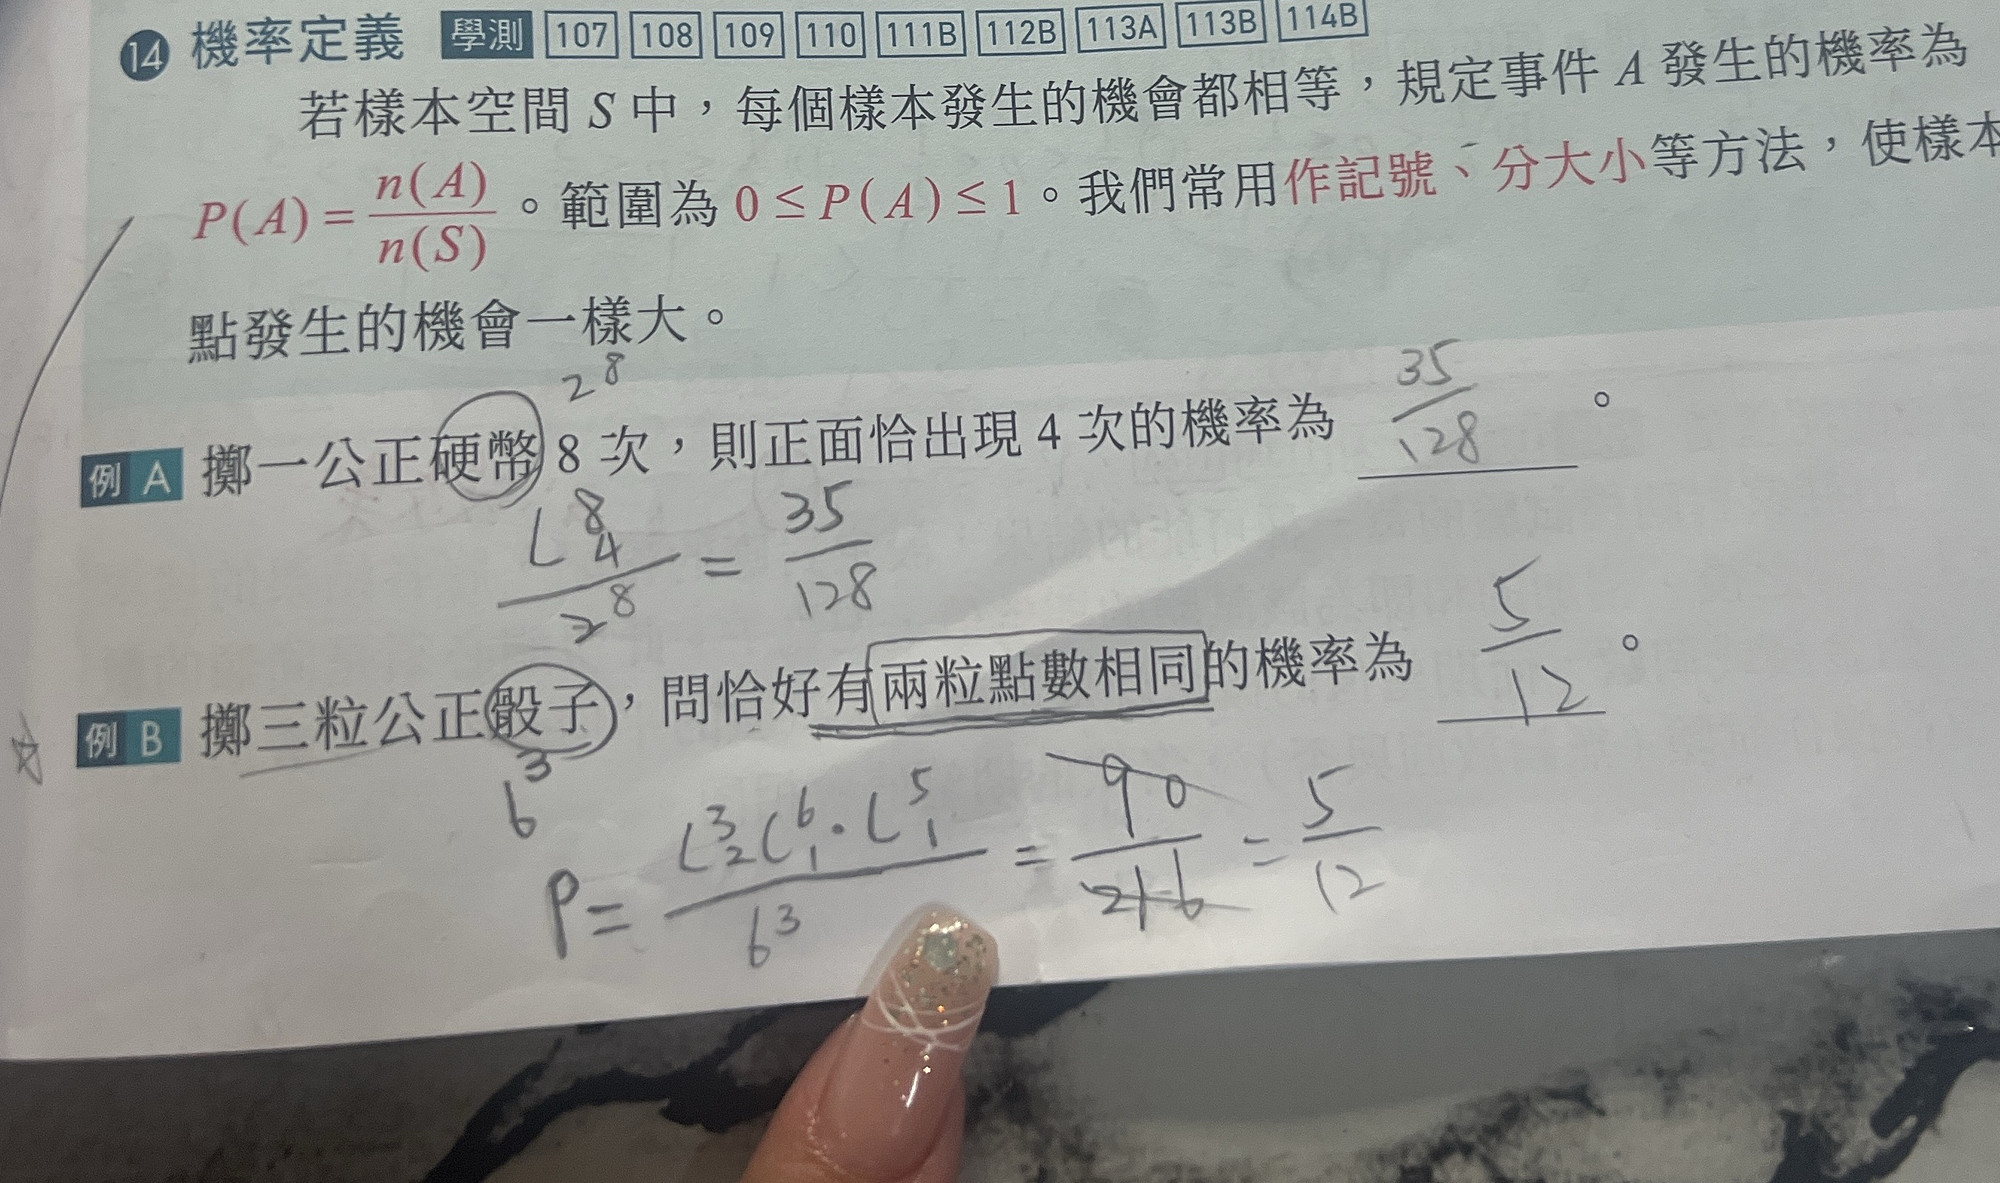 14 機率定義 學測 107 108 109 110 111B 112B 113A 113B 114B
若樣本空間 S 中，每個樣本發生的機會都相等，規定事件 A 發生的機率為
P(A) = n(A)/n(S)。範圍為 0 ≤ P(A) ≤ 1。我們常用作記號、分大小等方法，使樣本
點發生的機會一樣大。
2^8
例 A 擲一公正硬幣 8 次，則正面恰出現 4 次的機率為 35/128 。
C^8_4 / 2^8 = 35/128
例 B 擲三粒公正骰子，問恰好有兩粒點數相同的機率為 5/12 。
6^3
P = C^3_2 C^6_1 · C^5_1 / 6^3 = 90/216 = 5/12